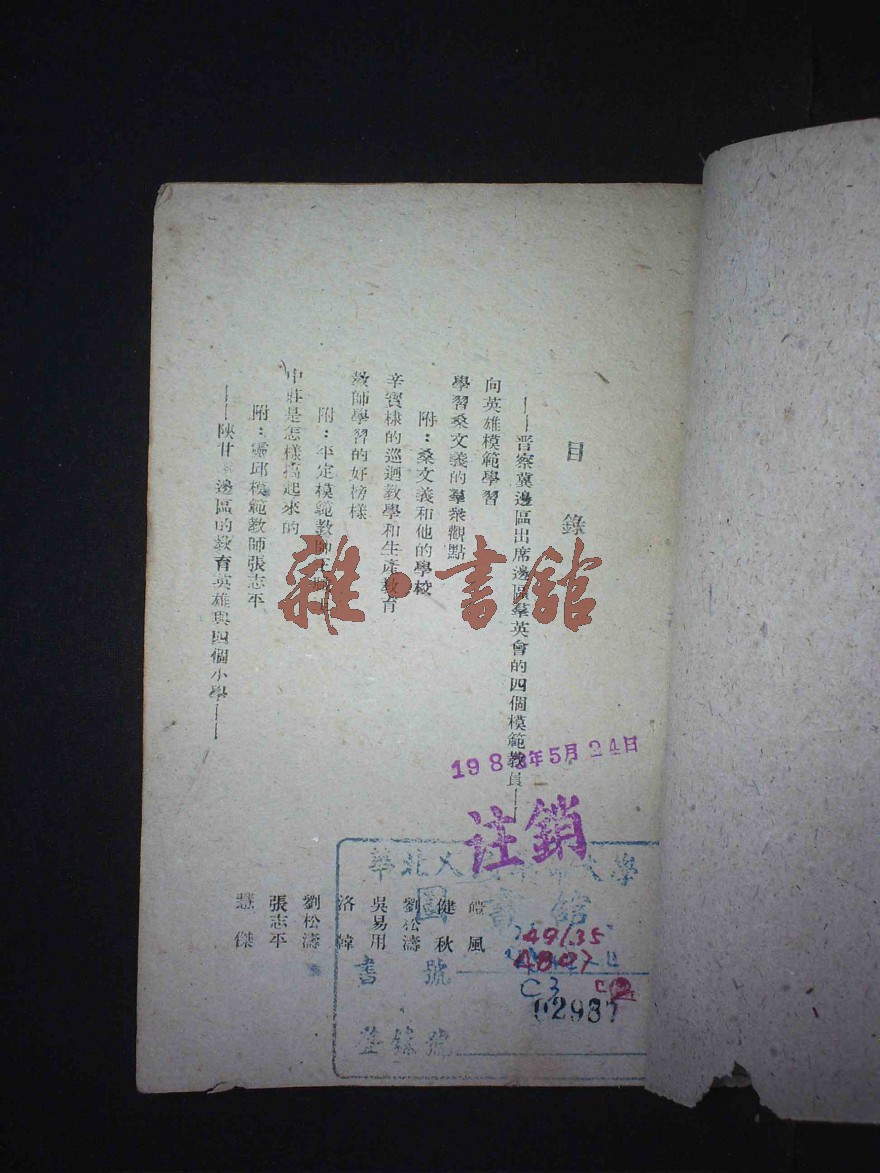 目錄
——晋察冀邊區出席邊區羣英會的四個模範教員——
向英雄模範學習
學習桑文義的羣衆觀點
附：桑文義和他的學校
辛寳棣的巡廻教學和生産教育
教師學習的好榜樣
附：平定模範教師
中莊是怎樣搞起來的
附：靈邱模範教師張志平
——陝甘 邊區的教育英雄與四個小學——
風
健秋
劉松濤
吳易用
洛韓
劉松濤
張志平
慧傑
雜·書館
5月24日
註銷
華北 大學
圖書館
書號
49135
4807
C3
02937
登錄號